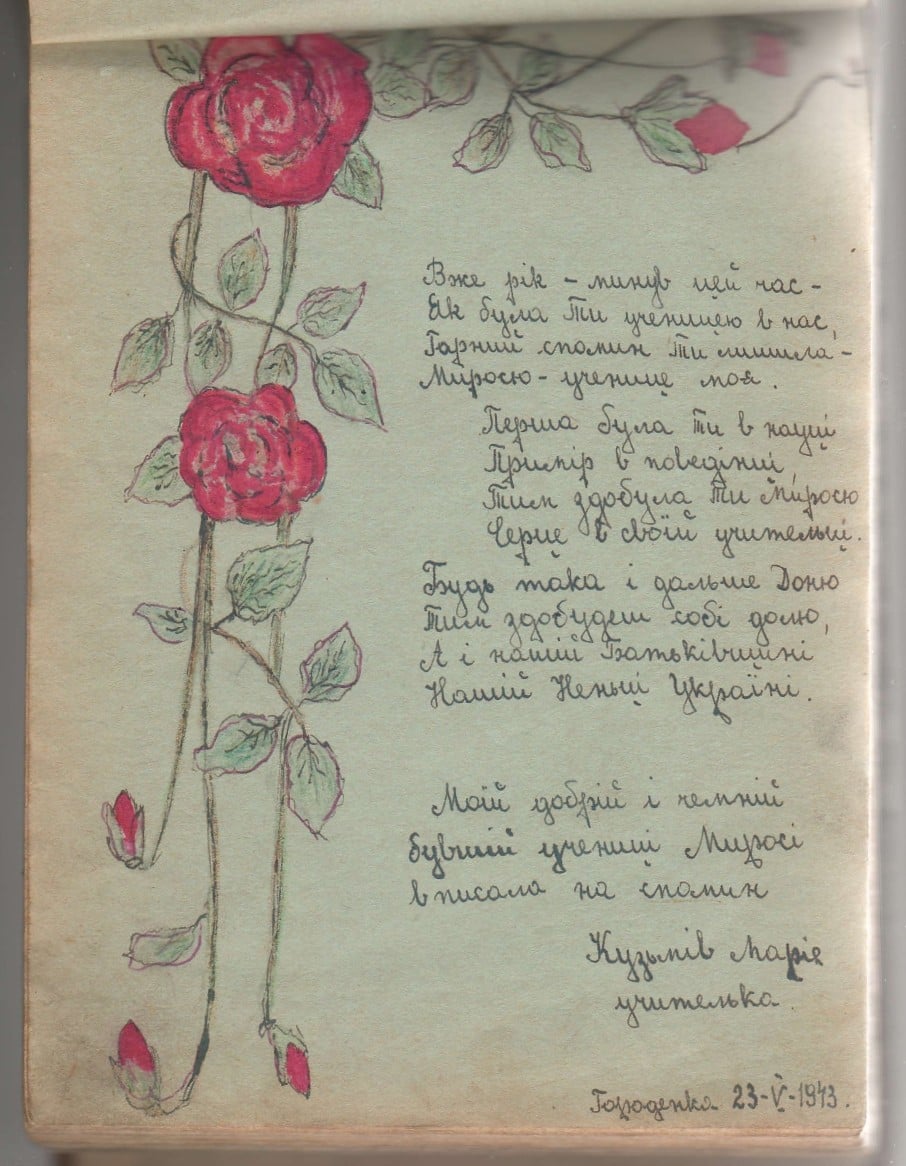 Вже рік – минув цей час –
Як була Ти ученицею в нас,
Гарний спомин Ти лишила –
Миросю – ученице моя.
Перша була Ти в науці
Примір в поведінці,
Тим здобула Ти Миросю
Серце в своїй учительці.
Будь така і дальше Доню
Тим здобудеш собі долю,
А і нашій Батьківщині
Нашій Неньці Україні.
Моїй добрій і чемній
бувшій учениці Миросі
вписала на спомин
Кузьмів Марія
учителька.
Городенка 23-V-1943.